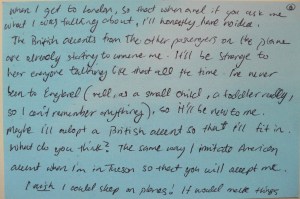 when I get to London, so that when and if you ask me
what I was talking about, I'll honestly have no idea.
The British accents from the other passengers on the plane
are already starting to unnerve me. It'll be strange to
hear everyone talking like that all the time. I've never
been to England (well, as a small child, a toddler really,
so I can't remember anything), so it'll be new to me.
Maybe I'll adopt a British accent so that I'll fit in.
What do you think? The same way I imitate American
accent when I'm in Tucson so that you will accept me.
I wish I could sleep on planes! It would make things